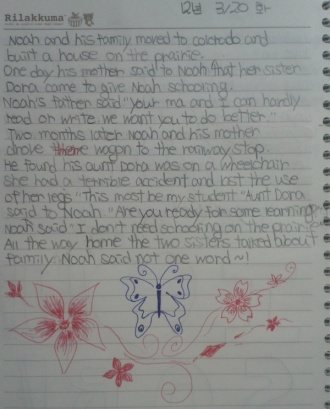 Rilakkuma
12년 3/20 화
Noah and his family moved to colorado and
built a house on the prairie.
One day his mother said to Noah that her sister
Dora came to give Noah schooling.
Noah's father said "your ma and I can hardly
read or write. we want you to do better."
Two months later Noah and his mother
drove there wagon to the railway stop.
He found his aunt Dora was on a wheelchair
She had a terrible accident and lost the use
of her legs "This most be my student" Aunt Dora
said to Noah. "Are you ready for some learning?"
Noah said "I don't need schooling on the prairie"
All the way home the two sisters talked about
family. Noah said not one word~!